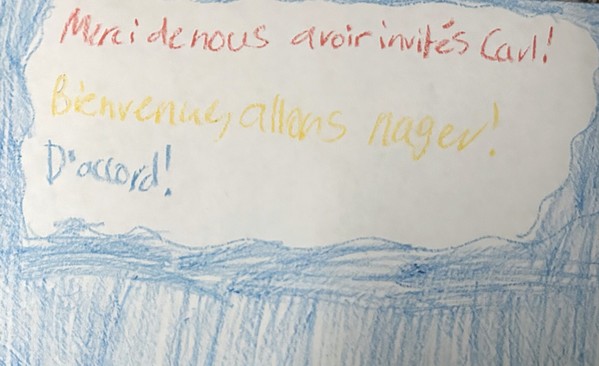 Merci de nous avoir invités Carl!
Bienvenue, allons nager!
D'accord!